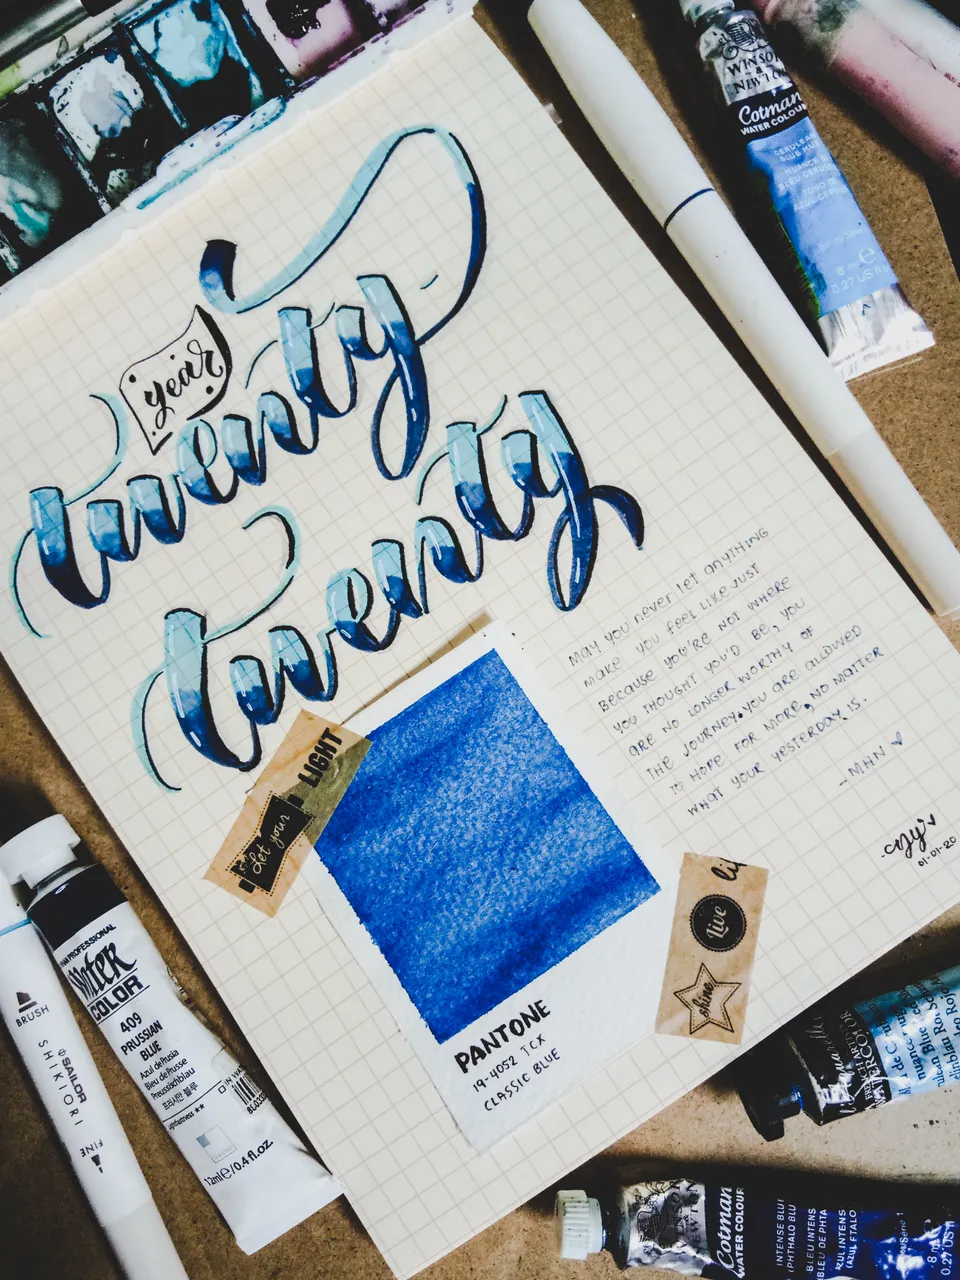 year
twenty
twenty
MAY YOU NEVER LET ANYTHING
MAKE YOU FEEL LIKE JUST
BECAUSE YOU'RE NOT WHERE
YOU THOUGHT YOU'D BE, YOU
ARE NO LONGER WORTHY OF
THE JOURNEY. YOU ARE ALLOWED
TO HOPE FOR MORE, NO MATTER
WHAT YOUR YESTERDAY IS.
- MHN
01-01-20
LIGHT
Let your
Live
shine
PANTONE
19-4052 TCX
CLASSIC BLUE
WINSOR
&
NEWTON
Cotman
WATER COLOUR
CERULEAN
BLUE HUE
8 ml e
0.27 US fl
PROFESSIONAL
Water
COLOR
409
PRUSSIAN
BLUE
Azul de Prusia
Bleu de Prusse
Preussischblau
프러시안 블루
Lightfastness **
12ml e/0.4 fl.oz
BRUSH
SAILOR
SHIKIORI
FINE
Cotman
WATER COLOUR
INTENSE BLUE
(PHTHALO BLUE
BLEU INTENS
(BLEU DE PHTA
AZUL INTENS
(AZUL FTALO
Series 1
8 ml e
0.27 US